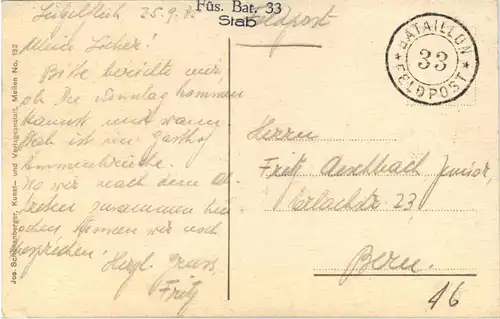 Füs. Bat. 33
Stab
Feldpost
25.9.
BATAILLON
33
FELDPOST
Mein Lieber!
Bitte berichte mir
ob Du Sonntag kommen
kannst und wann
Stab ist im Gasthof
Emmenbrücke.
Wo wir nach dem Ab
treten zusammen hin
gehen können wir noch
besprechen!
Herzl. Gruss
Fritz
Herrn
Fritz Aeschbach junior,
Erlachstr. 23
Bern.
46
Jos. Schönenberger, Kunst- und Verlagsanstalt, Meilen No. 132